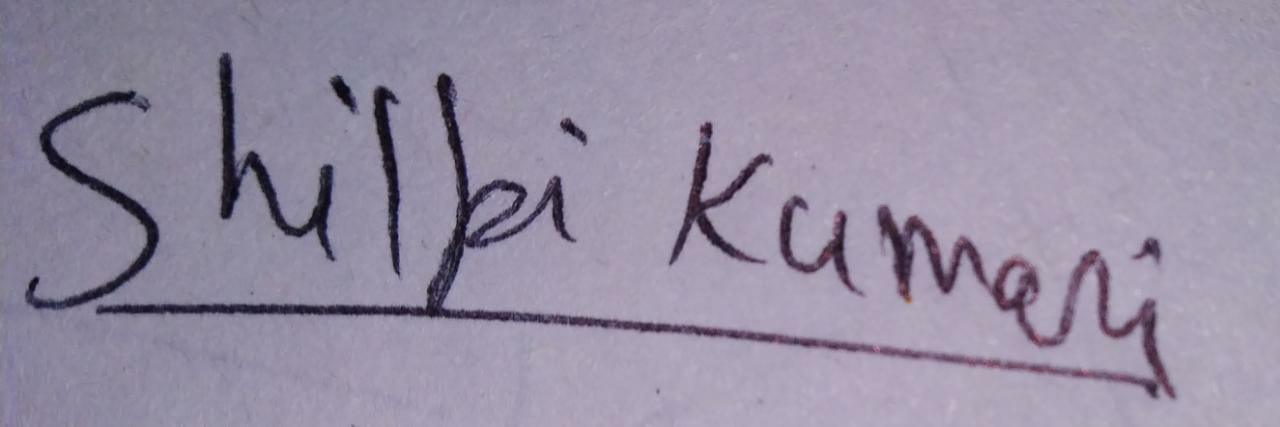 Shilpi Kumari